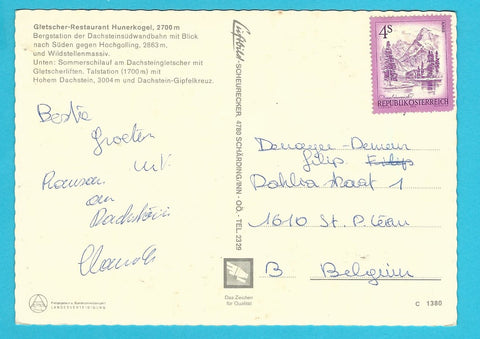 Gletscher-Restaurant Hunerkogel, 2700 m
Bergstation der Dachsteinsüdwandbahn mit Blick
nach Süden gegen Hochgolling, 2863 m,
und Wildstellenmassiv.
Unten: Sommerschilauf am Dachsteingletscher mit
Gletscherliften. Talstation (1700 m) mit
Hohem Dachstein, 3004 m und Dachstein-Gipfelkreuz.
Beste
Groeten
uit
Ramsau
am
Dachstein
Luftbild-SCHEURECKER, 4780 SCHÄRDING/INN - OÖ. - TEL. 2329
4S
REPUBLIK ÖSTERREICH
Filip
1610 St. P. Leeuw
B Belgium
Das Zeichen
für Qualität
C 1380